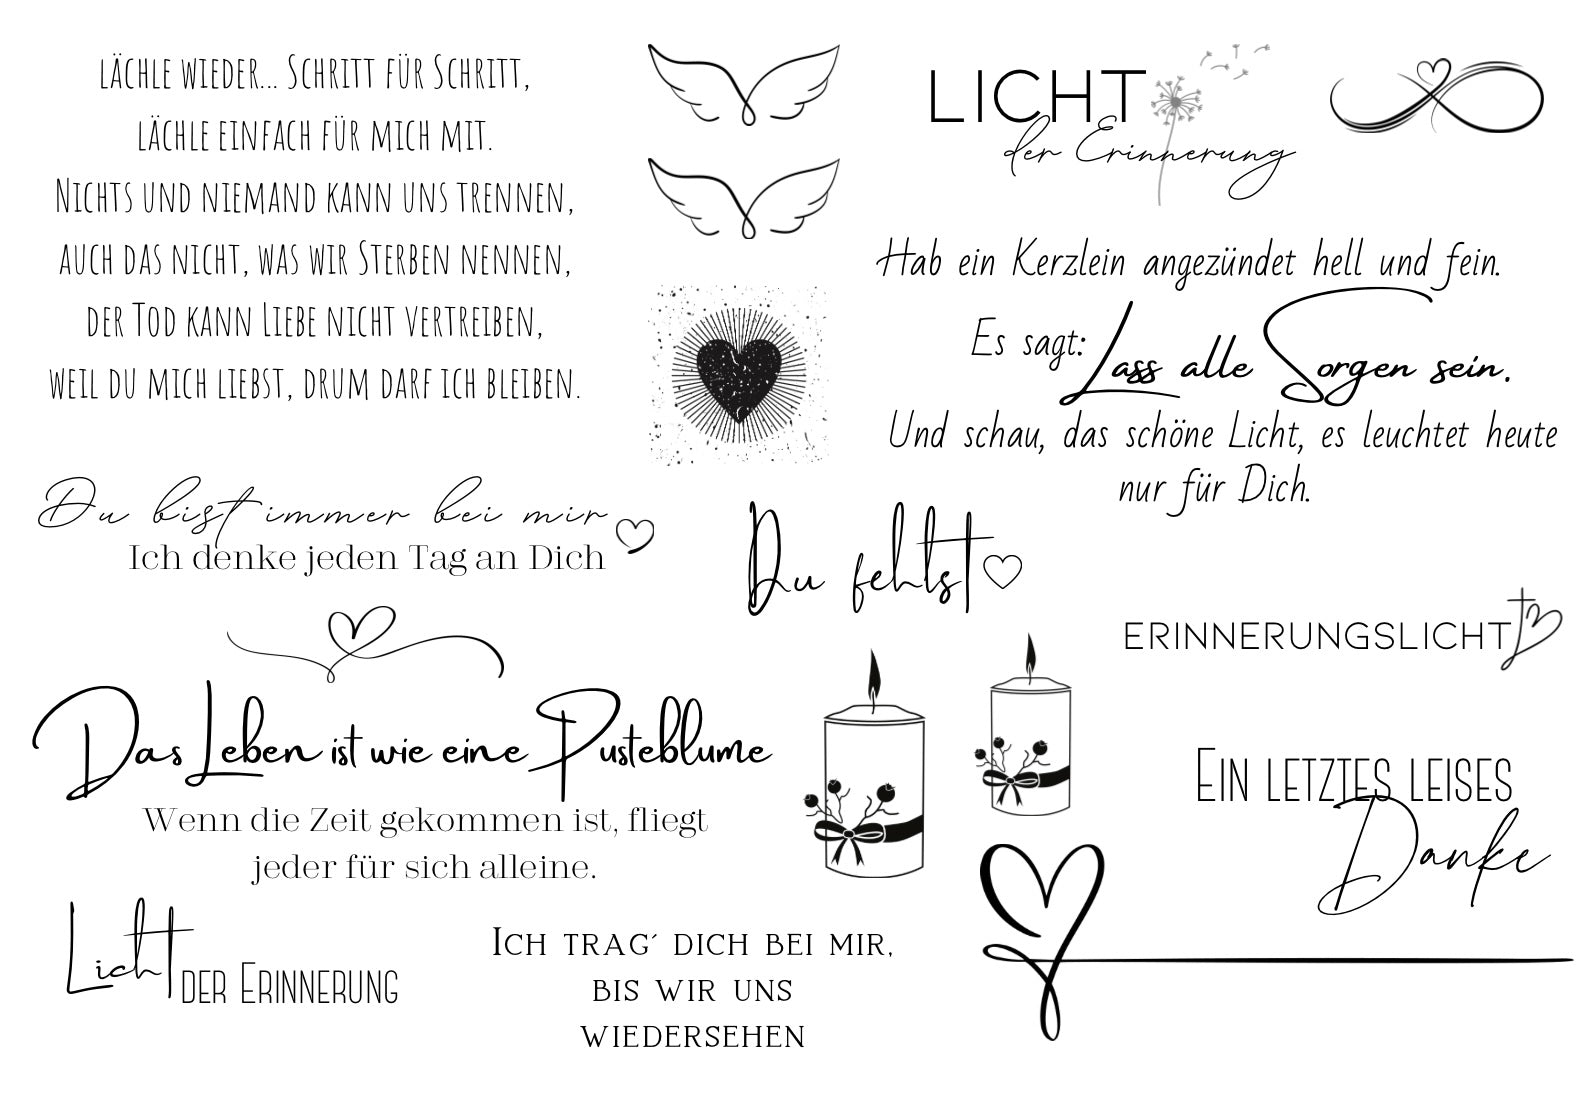 LÄCHLE WIEDER... SCHRITT FÜR SCHRITT,
LÄCHLE EINFACH FÜR MICH MIT.
NICHTS UND NIEMAND KANN UNS TRENNEN,
AUCH DAS NICHT, WAS WIR STERBEN NENNEN,
DER TOD KANN LIEBE NICHT VERTREIBEN,
WEIL DU MICH LIEBST, DRUM DARF ICH BLEIBEN.
LICHT
der Erinnerung
Hab ein Kerzlein angezündet hell und fein.
Es sagt: Lass alle Sorgen sein.
Und schau, das schöne Licht, es leuchtet heute
nur für Dich.
Du bist immer bei mir
Ich denke jeden Tag an Dich
Du fehlst
ERINNERUNGSLICHT
Das Leben ist wie eine Pusteblume
Wenn die Zeit gekommen ist, fliegt
jeder für sich alleine.
EIN LETZTES LEISES
Danke
Licht DER ERINNERUNG
ICH TRAG´ DICH BEI MIR,
BIS WIR UNS
WIEDERSEHEN